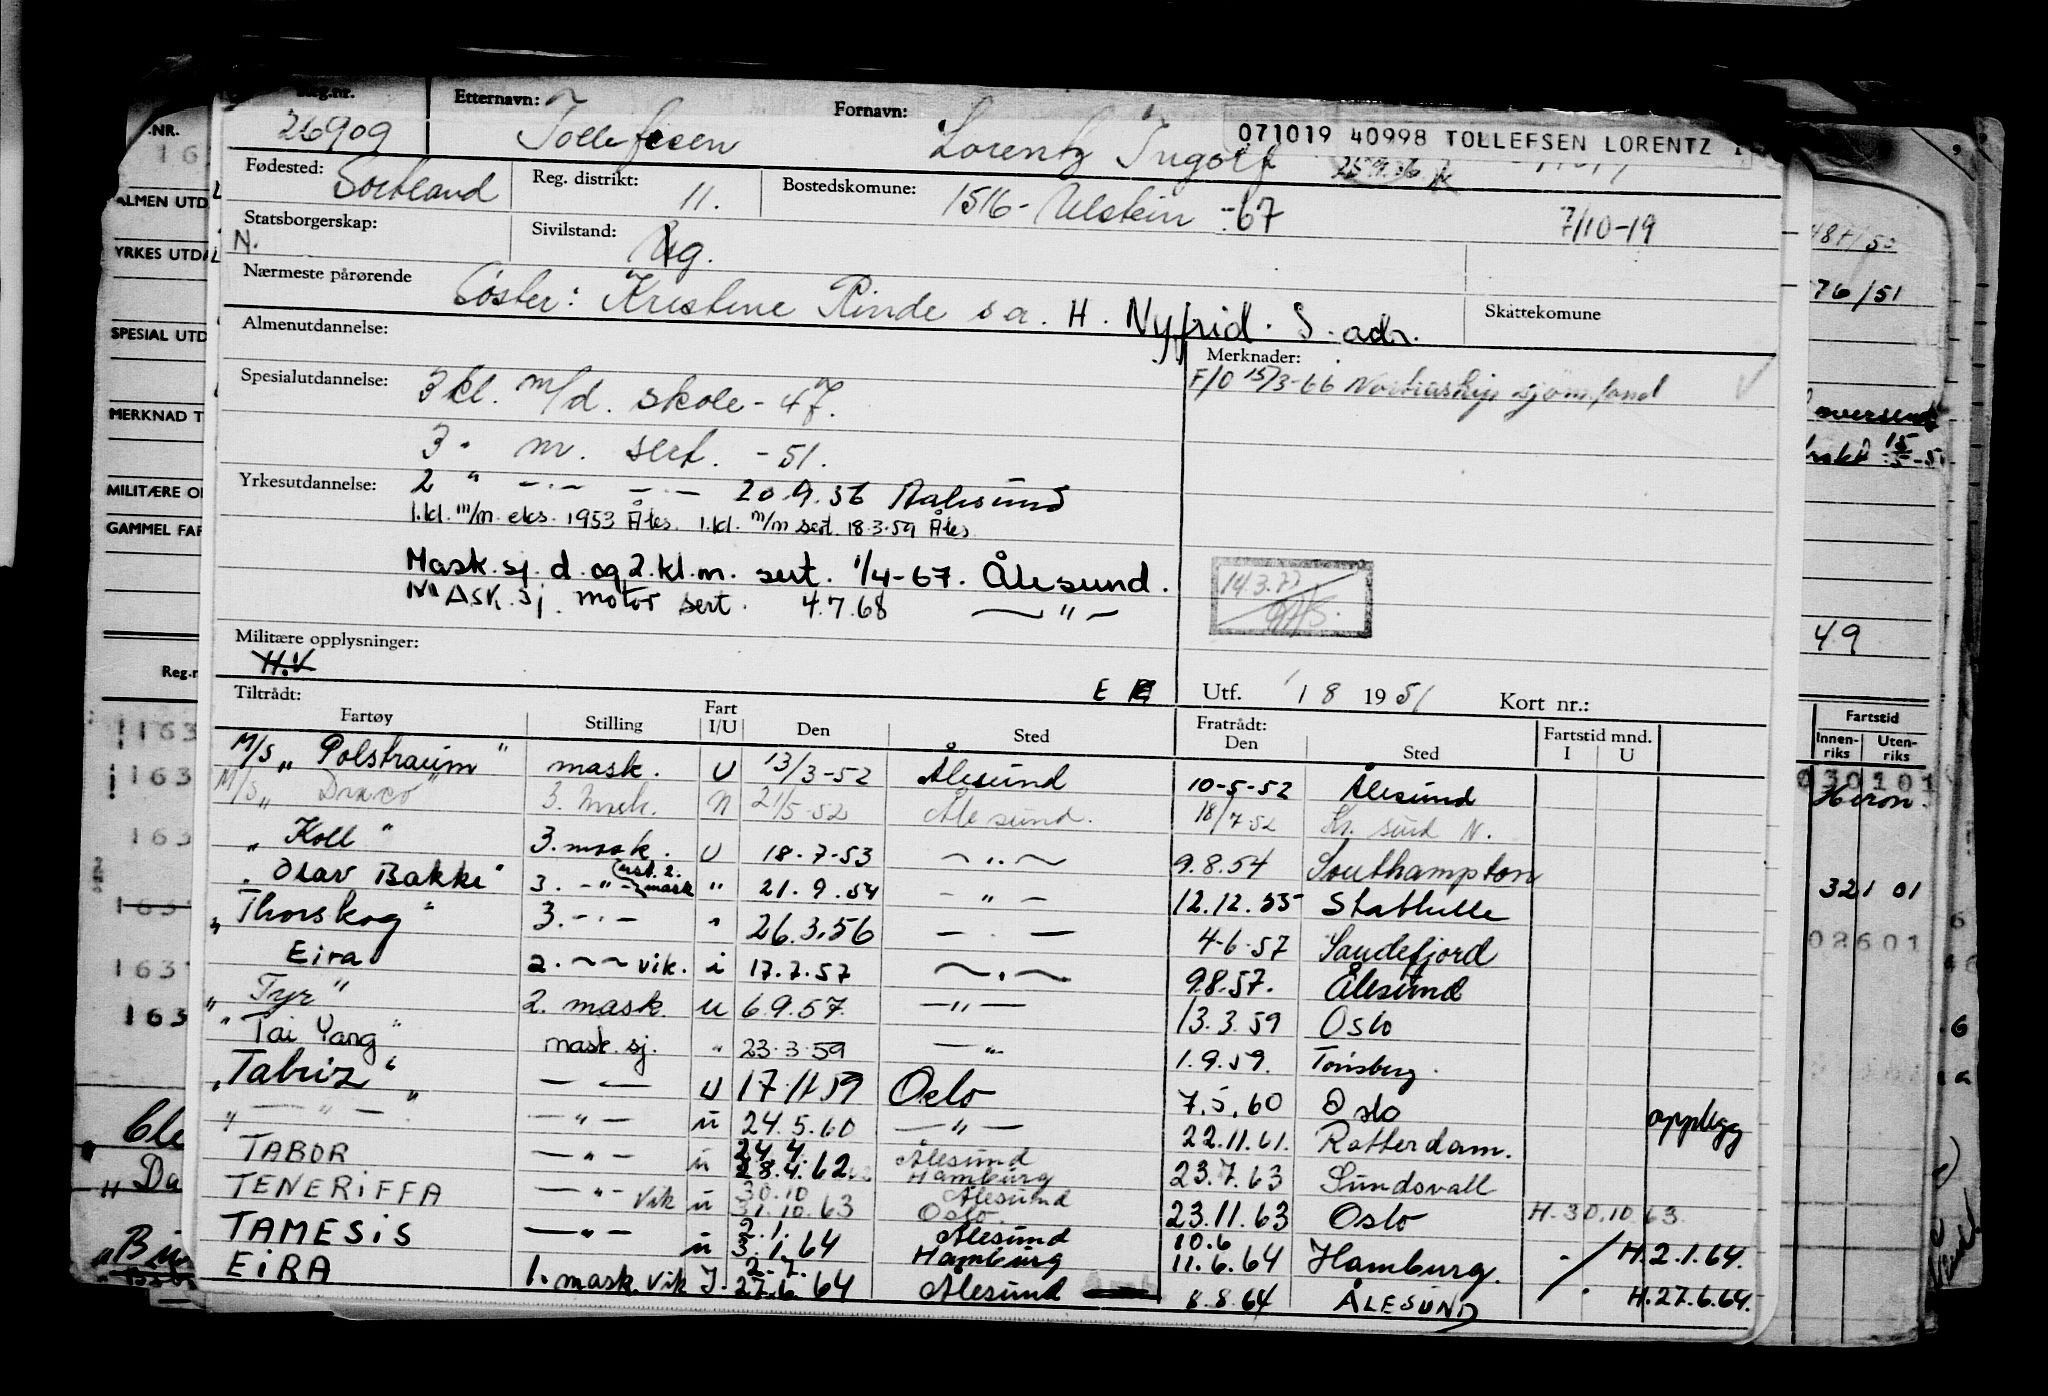 Reg.nr. Etternavn: Fornavn:
26909 Tollefsen Lorentz Ingolf
071019 40998 TOLLEFSEN LORENTZ I
Fødested: Sortland Reg. distrikt: 11. Bostedskommune: 1516-Ulstein -67 7/10-19
Statsborgerskap: N. Sivilstand: Ug.
Nærmeste pårørende Søster: Kristine Rinde s a. H. Nyfrid. S. adr. Skattekomune
Almenutdannelse: Merknader:
F/O 15/3-66 Nortraship sjøm.fond
Spesialutdannelse: 3 kl. m/d. skole - 47.
3 " m. sert. - 51.
Yrkesutdannelse: 2 " — . — — . — 20.9.56 Aalesund
1.kl. m/m. eks. 1953 Åles. 1.kl. m/m sert. 18.3.59 Åles
Mask. sj. d. og 2.kl. m. sert. 1/4-67. Ålesund.
Mask. sj. motor sert. 4.7.68 — " —
14.3.77
Militære opplysninger:
H.V
Tiltrådt: E Utf. 1 8 1951 Kort nr.:
Fartøy Stilling Fart I/U Den Sted Fratrådt: Den Sted Fartstid mnd. I U
M/S „ Polstraum " mask. U 13/3-52 Ålesund 10-5-52 Ålesund
M/S „ Draco " 3. mask. N 21/5-52 Ålesund. 18/7 52 Kr. sund N.
„ Koll " 3. mask. U 18-7-53 — „ — 9.8.54 Southampton
„ Olav Bakke " 3. - " - (ust. 2. mask " 21.9.54 - " - 12.12.55 Stathelle
„ Thorskog " 3. - . - " 26.3.56 — . — 4-6-57 Sandefjord
Eira 2. — — vik. i 17.7.57 — . — 9.8.57. Ålesund
„ Tyr " 2. mask. u 6.9.57. — " — 13.3.59 Oslo
„ Tai Yang " mask. sj. " 23.3.59 — " 1.9.59. Tønsberg.
„ Tabriz " — — U 17.11.59 Oslo 7.5.60 Oslo opplegg
„ — " — " — " — u 24.5.60 — " — 22.11.61. Rotterdam.
TABOR — " — u 24.4. 28.4.62 Ålesund Hamburg 23.7.63 Sundsvall
TENERIFFA — " — Vik u 30.10 31.10.63 Ålesund Oslo. 23.11.63 Oslo H.30.10.63.
TAMESIS — " — u 2.1. 3.1.64 Ålesund Hamburg 10.6 11.6.64 Hamburg. - / H.2.1.64.
EIRA 1. mask. vik I. 2.7. 27.6.64 Ålesund 8.8.64 ÅLESUND H.27.6.64.
.NR.
ALMEN UTD
YRKES UTDA
SPESIAL UTD
MERKNAD T
MILITÆRE O
GAMMEL FAR
Reg.n
163
163
163
163
163
163
487/52
76/51
oversendt
15/5-5
49
Fartstid
Innen-riks Uten-riks
030101
Heron.
321 01
02601
6
6
Da